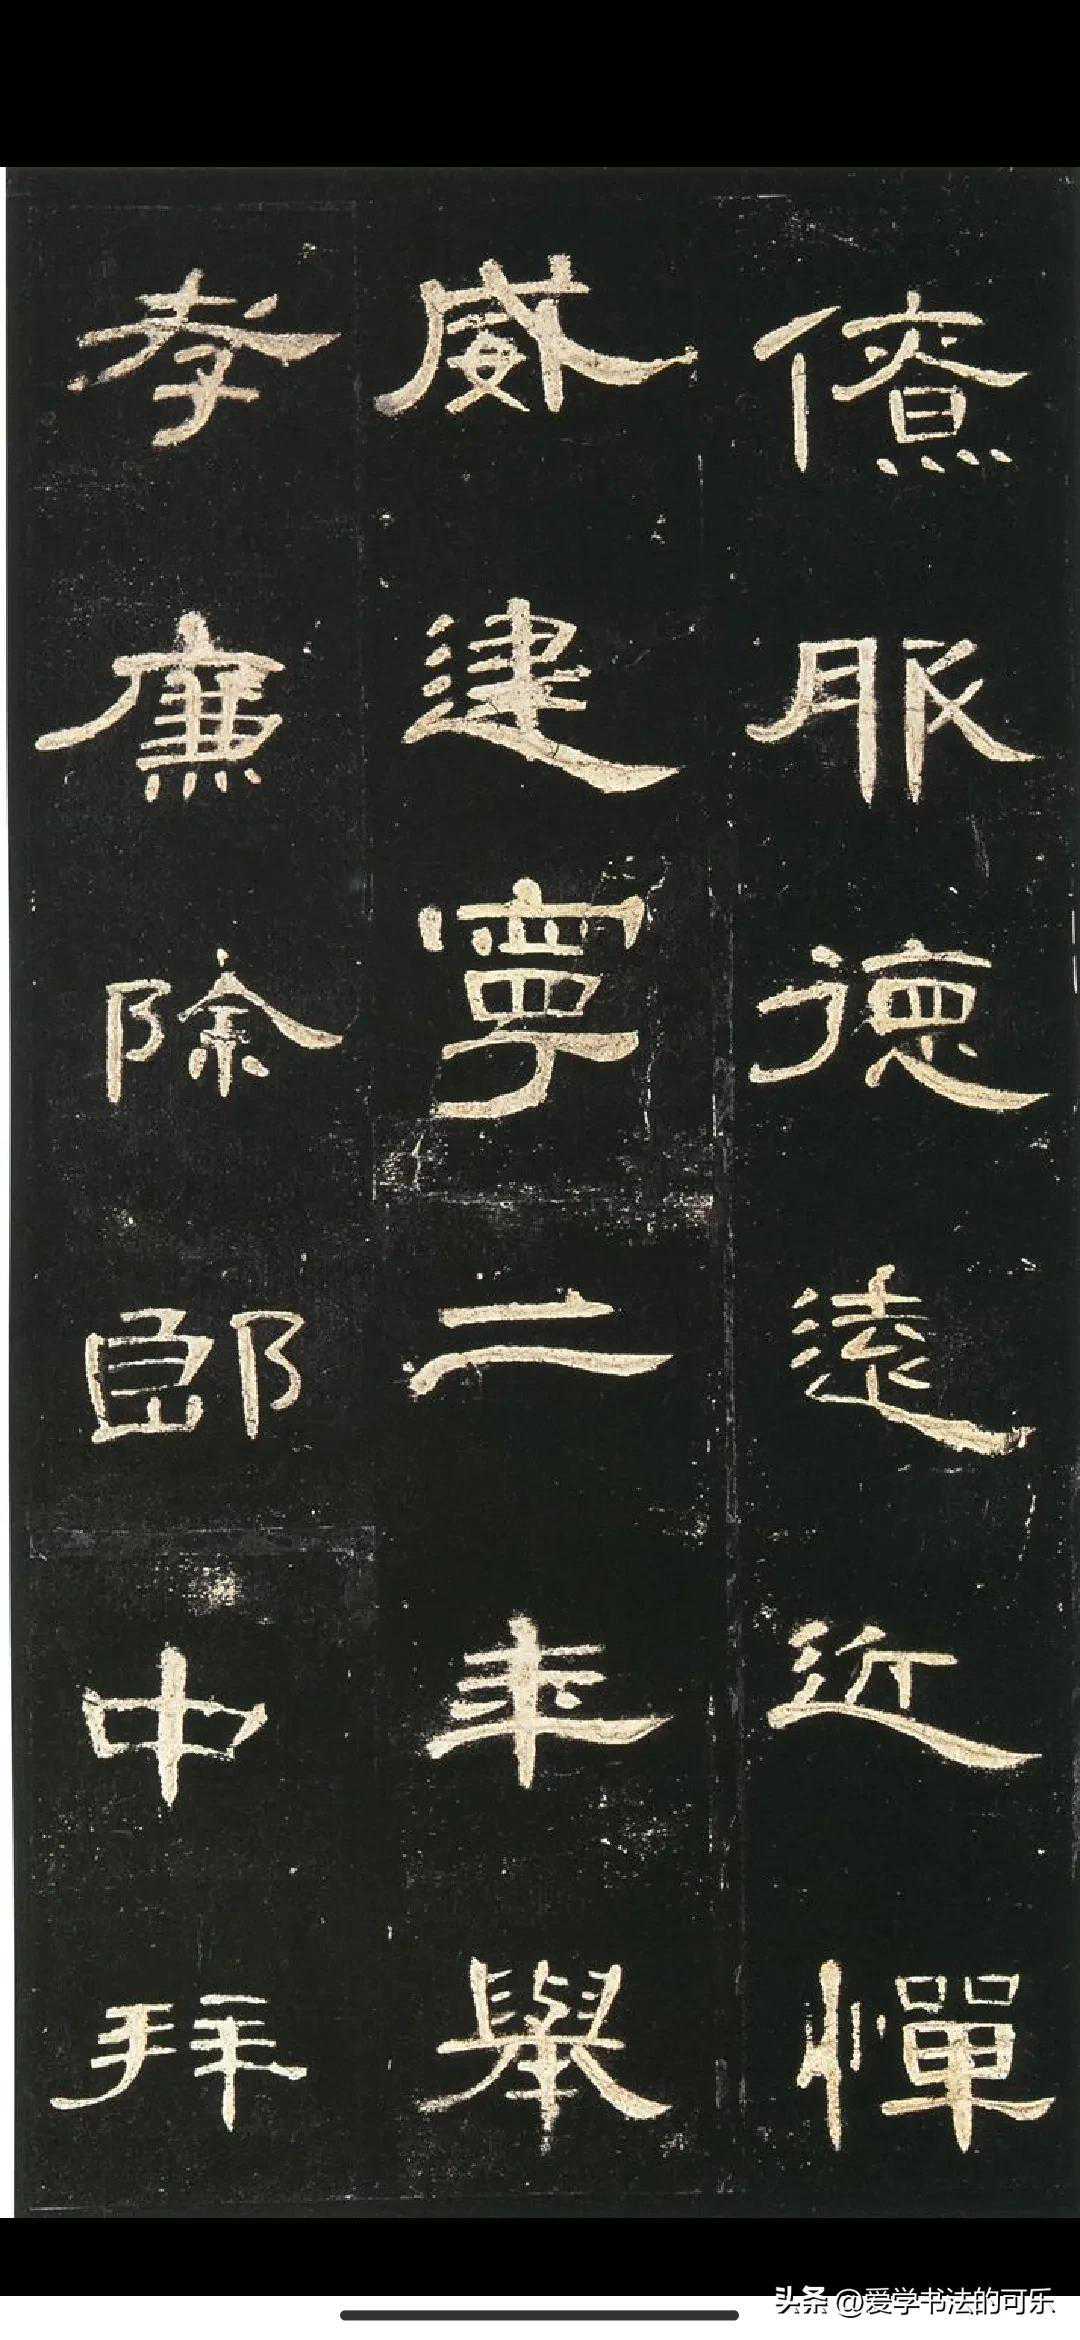 僚服德遠近憚
威建寧二年舉
孝廉除郎中拜
头条 @爱学书法的可乐